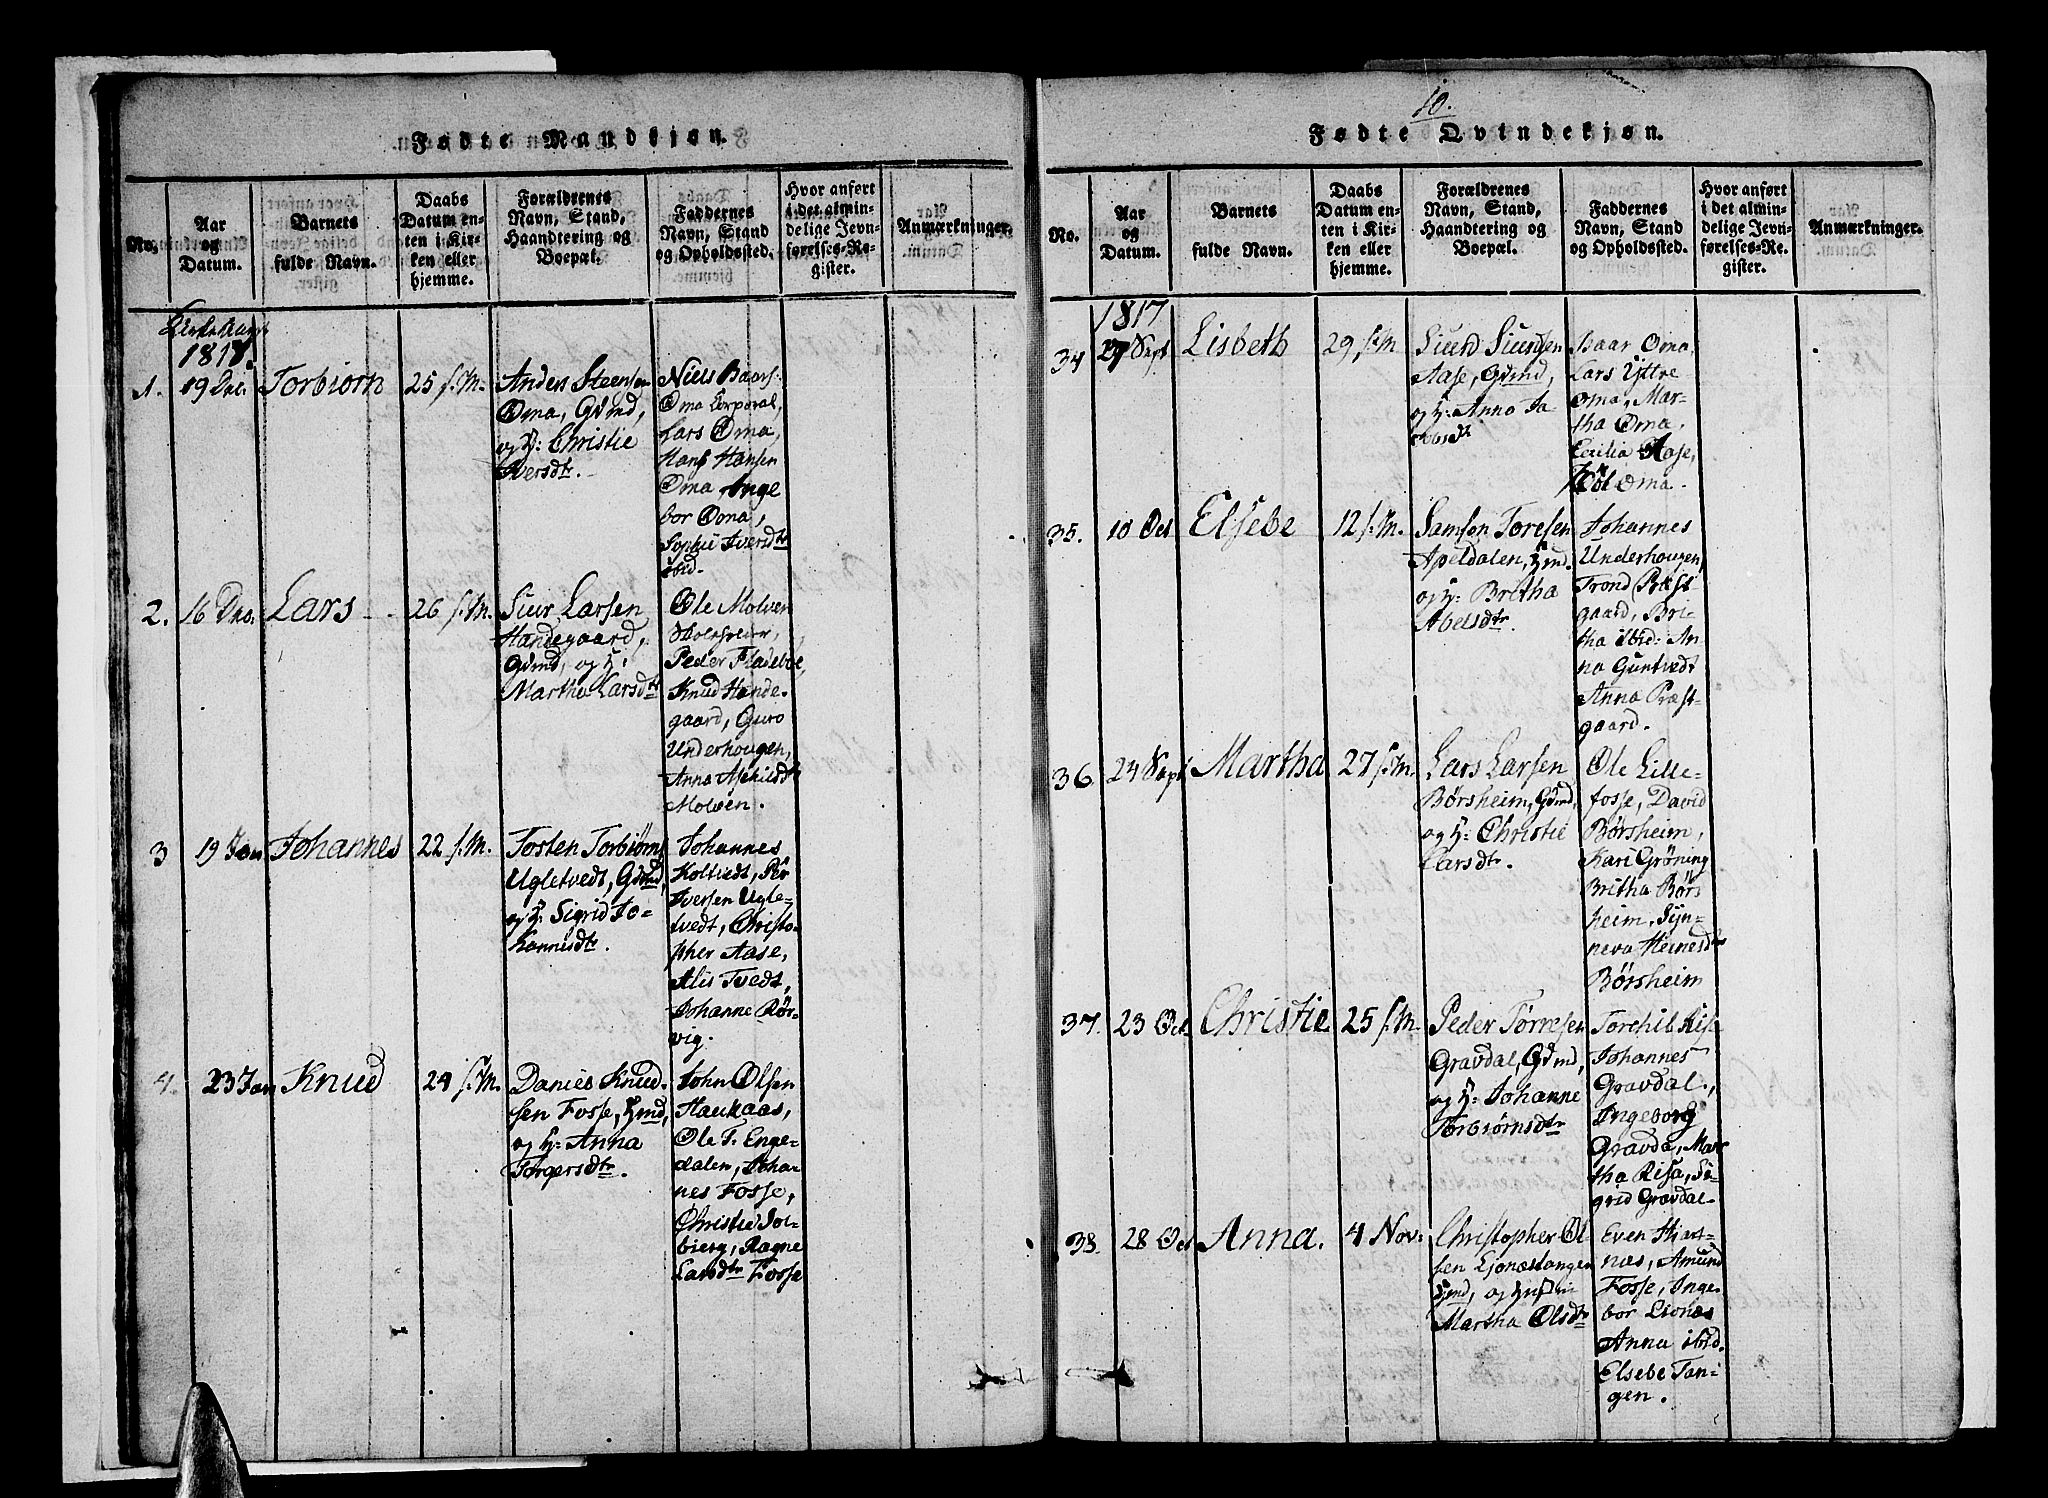 Fødte Mandkjøn.
No.
Aar
og
Datum.
Barnets
fulde Navn.
Daabs
Datum en-
ten i Kir-
ken eller
hjemme.
Forældrenes
Navn, Stand,
Haandtering og
Boepæl.
Faddernes
Navn, Stand
og Opholdssted.
Hvor anført
i det almin-
delige Jevn-
førelses-Re-
gister.
Anmærkninger.
1818.
1. 19 Dec. Torbiorn 25 s. M.
Anders Steensen
Oma, Gdmd,
og H: Christie
Iversdtr.
Niels Baars-
Oma Corporal,
Lars Oma,
Hans Hansen
Oma, Inge
bor Oma,
Sophie Iversdtr
ibid.
2. 16 Dec. Lars 26 s. M.
Siur Larsen
Handegaard,
Gdmd, og H:
Martha Larsdtr
Ole Molven
Peder Fladeboe,
Knud Hande-
gaard, Guro
Underhougen,
Anna Aschildsdtr
Molven.
3 19 Jan Johannes 22 s. M.
Tosten Torbiørns
Ugletvedt, Gdmd,
og H: Sigrid Jo-
hannisdtr.
Johannes
Koltvedt, Per
Iversen Ugle-
tvedt, Christo-
pher Aase,
Alis Tvedt,
Johanne Rør-
vig.
4. 23 Jan Knud 24 s. M.
Daniel Knud-
sen Fosse, Hmd,
og H: Anna
Torgersdtr.
John Olsen
Haukaas,
Ole T. Enge-
dalen, Johan
nes Fosse,
Christie Sol-
bierg, Ragne
Larsdtr Fosse
10.
Fødte Qvindekjøn.
No.
Aar
og
Datum.
Barnets
fulde Navn.
Daabs
Datum en-
ten i Kir-
ken eller
hjemme.
Forældrenes
Navn, Stand,
Haandtering og
Boepæl.
Faddernes
Navn, Stand
og Opholdssted.
Hvor anført
i det almin-
delige Jevn-
førelses-Re-
gister.
Anmærkninger.
1817
34 27 Sept Lisbeth 29 s. M
Siurd Siursen
Aase, Gdmd,
og H: Anna Ja
Baar Oma,
Lars Yttre
Oma, Mar-
tha Oma,
Cecilia Aase,
Oma.
35. 10 Oct Elsebe 12 s. M.
Samson Toresen
Apeldalen, Hmd.
og H: Britha
Abelsdtr.
Johannes
Underhougen,
Trond Præst-
gaard, Bri-
tha ibid: An
na Guntvedt
Anna Præst-
gaard.
36 24 Sept Martha 27 s. M.
Lars Larsen
Børsheim, Gdmd,
og H: Christie
Larsdtr.
Ole Lille-
fosse, David
Børsheim,
Kari Grøning
Britha Børs
heim, Syn-
neva Heinesdtr
Børsheim
37. 23 Oct Christie 25 s. M.
Peder Tørresen
Gravdal, Gdmd,
og H: Johanne
Torbiørnsdtr
Torchil Risa
Johannes
Gravdal,
Ingeborg
Gravda, Mar
tha Risa, Si-
grid Gravdal-
38. 28 Oct Anna. 4 Nov:
Christopher Ol-
sen Ljonestangen
Hmd, og Hustru
Martha Olsdtr
Even Hjart-
næs, Amund
Fosse, Inge-
bor Lionæs
Anna ibid.
Elsebe Tan-
gen.